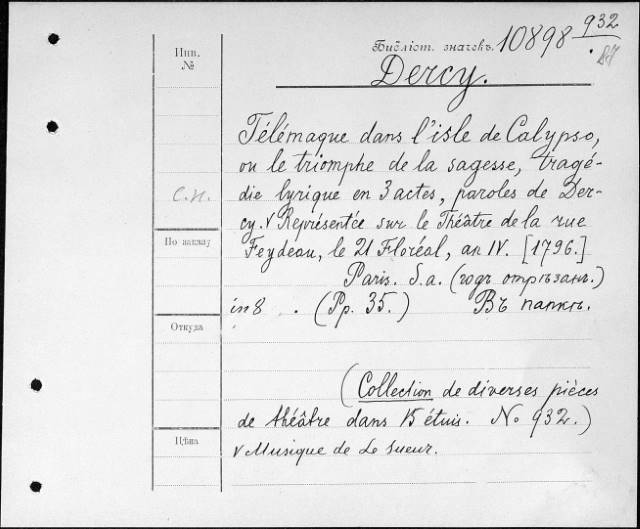 932
Инв. №
Библіот. значекъ. 10898
87
Dercy.
Télémaque dans l'isle de Calypso,
ou le triomphe de la sagesse, tragé-
die lyrique en 3 actes, paroles de Der-
С.И.
cy. v Représentée sur le Théâtre de la rue
По заказу
Feydeau, le 21 Floréal, an IV. [1796.]
Paris. S.a. (годъ отрѣзанъ.)
in 8 . (Pp. 35.) Въ папкѣ.
Откуда
(Collection de diverses pièces
de théâtre dans 15 étuis. No 932.)
Цѣна
v Musique de Le Sueur.